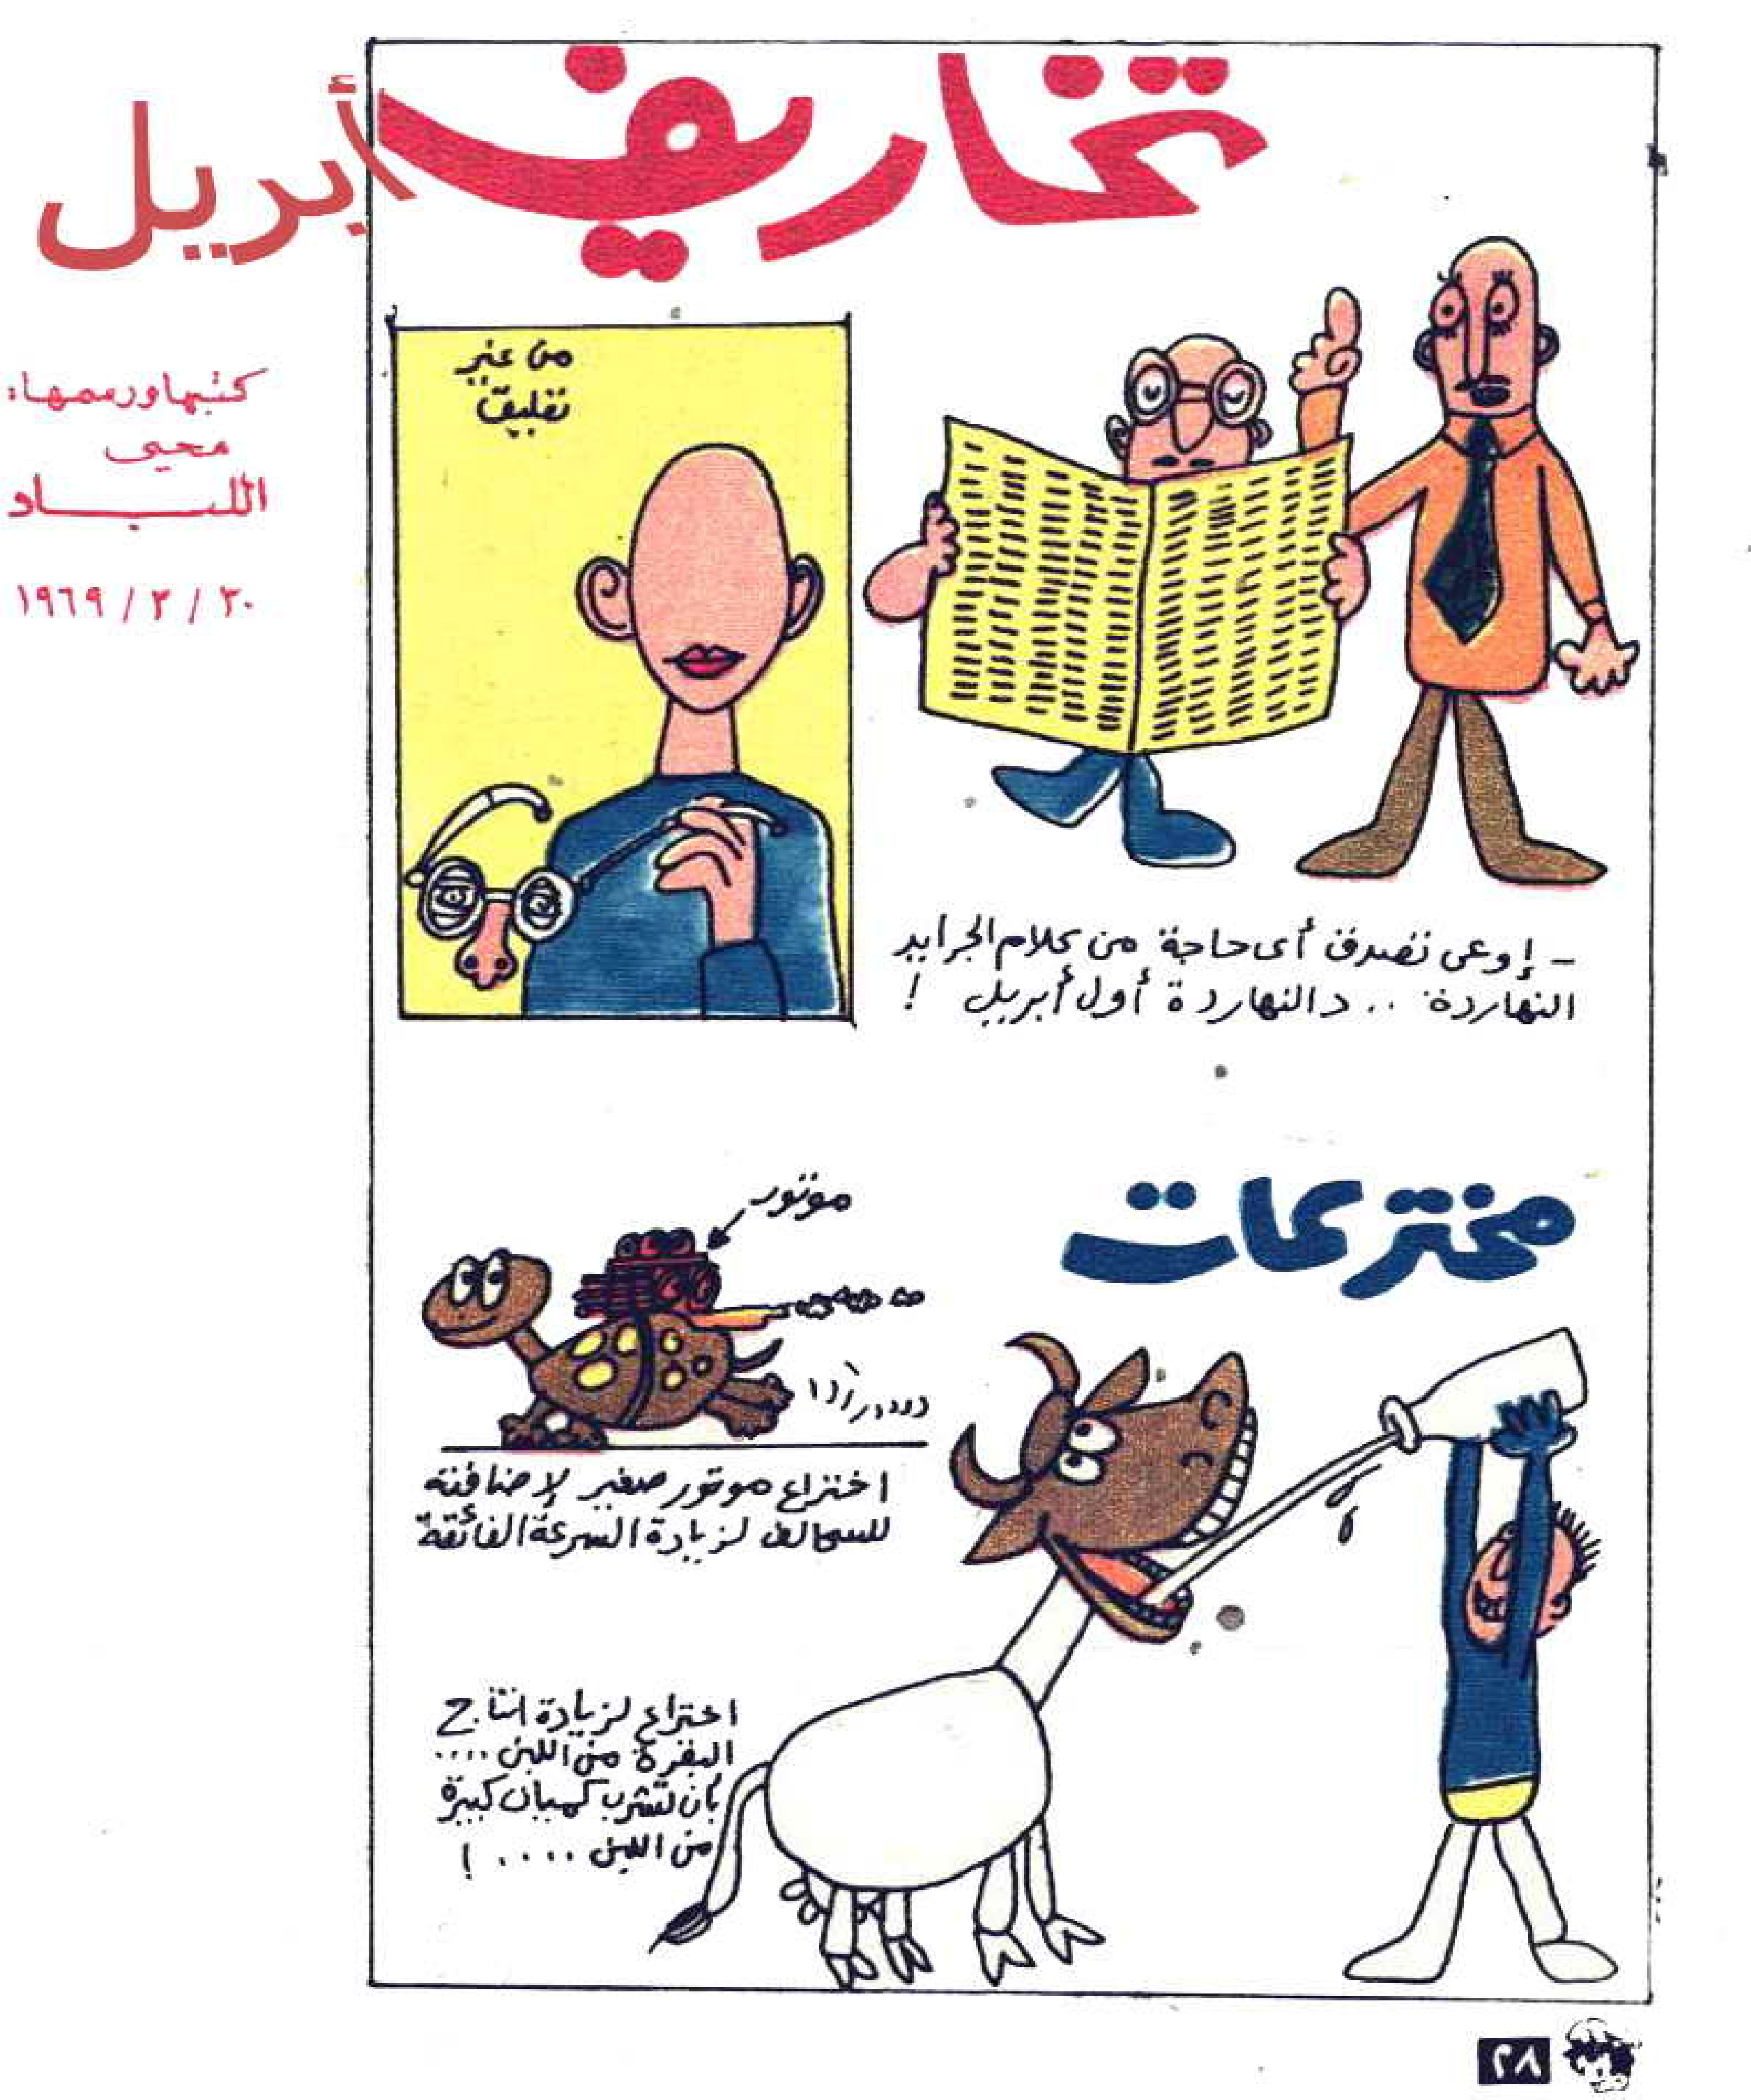 تخاريف أبريل
كتبها ورسمها:
محيى
اللبــاد
٣٠ / ٣ / ١٩٦٩
من غير
تعليق
- إوعى تصدق أى حاجة من كلام الجرايد
النهاردة .. د النهاردة أول أبريل !
مخترعات
موتور
اختراع موتور صغير لإضافته
للسحالف لزيادة السرعة الفائقة
اختراع لزيادة انتاج
البقرة من اللبن ....
بأن تشرب كميات كبيرة
من اللبن .... !
٢٨